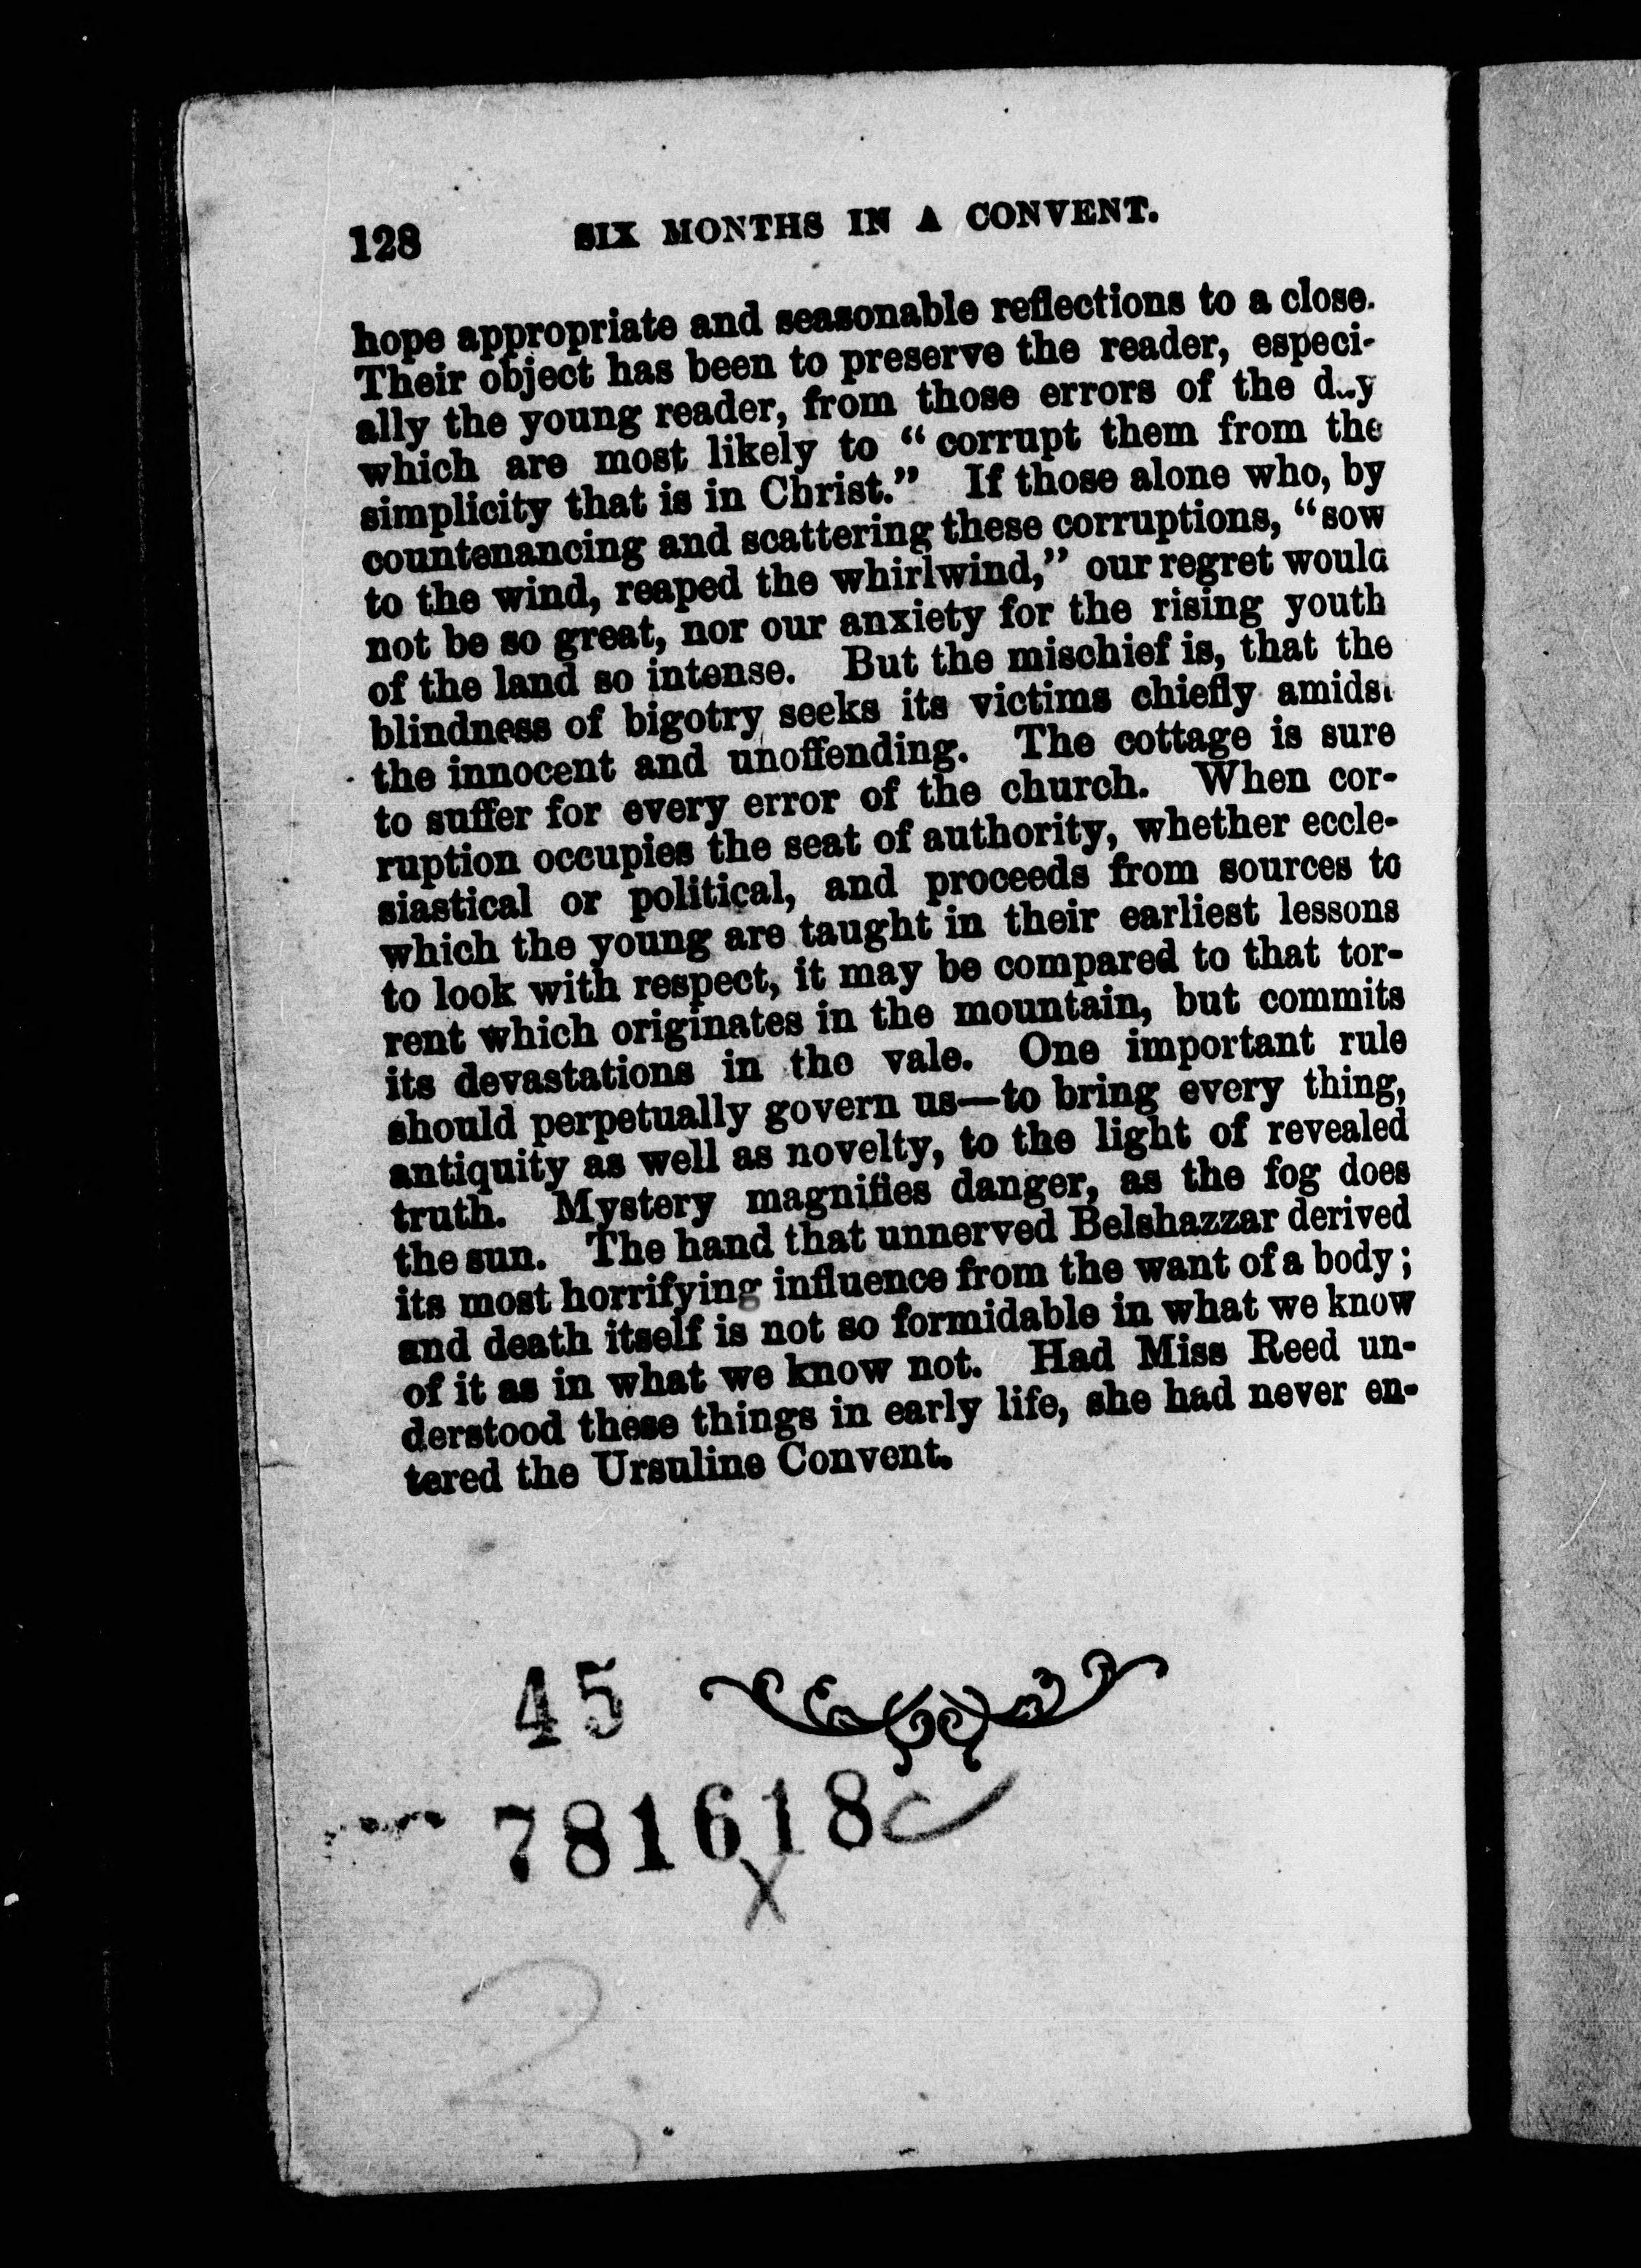 128 SIX MONTHS IN A CONVENT.
hope appropriate and seasonable reflections to a close.
Their object has been to preserve the reader, especi-
ally the young reader, from those errors of the d..y
which are most likely to “corrupt them from the
simplicity that is in Christ.” If those alone who, by
countenancing and scattering these corruptions, “sow
to the wind, reaped the whirlwind,” our regret would
not be so great, nor our anxiety for the rising youth
of the land so intense. But the mischief is, that the
blindness of bigotry seeks its victims chiefly amidst
the innocent and unoffending. The cottage is sure
to suffer for every error of the church. When cor-
ruption occupies the seat of authority, whether eccle-
siastical or political, and proceeds from sources to
which the young are taught in their earliest lessons
to look with respect, it may be compared to that tor-
rent which originates in the mountain, but commits
its devastations in the vale. One important rule
should perpetually govern us—to bring every thing,
antiquity as well as novelty, to the light of revealed
truth. Mystery magnifies danger, as the fog does
the sun. The hand that unnerved Belshazzar derived
its most horrifying influence from the want of a body;
and death itself is not so formidable in what we know
of it as in what we know not. Had Miss Reed un-
derstood these things in early life, she had never en-
tered the Ursuline Convent.
45
781618
x
2